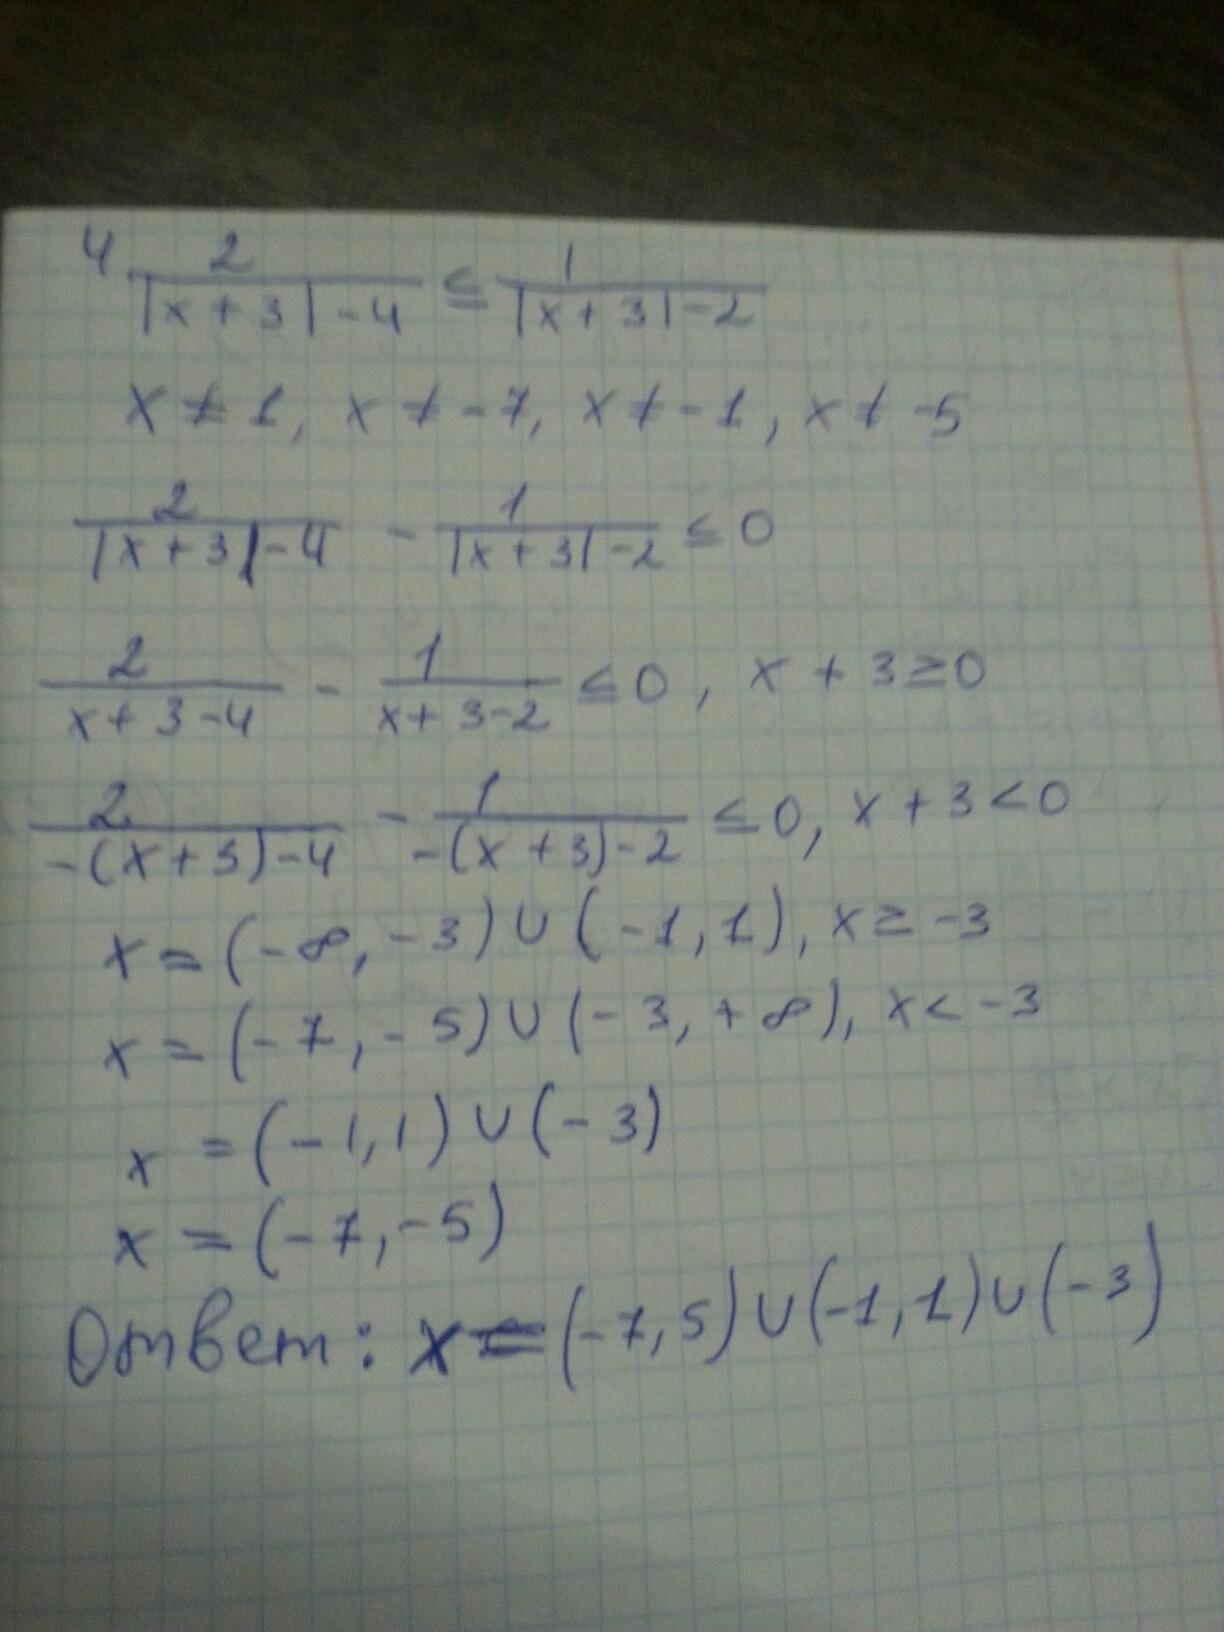 4 2/(|x+3|-4) ≤ 1/(|x+3|-2)
x ≠ 1, x ≠ -7, x ≠ -1, x ≠ -5
2/(|x+3|-4) - 1/(|x+3|-2) ≤ 0
2/(x+3-4) - 1/(x+3-2) ≤ 0, x+3≥0
2/(-(x+3)-4) - 1/(-(x+3)-2) ≤ 0, x+3<0
x = (-∞, -3) ∪ (-1, 1), x ≥ -3
x = (-7, -5) ∪ (-3, +∞), x < -3
x = (-1, 1) ∪ (-3)
x = (-7, -5)
Ответ: x = (-7, 5) ∪ (-1, 1) ∪ (-3)